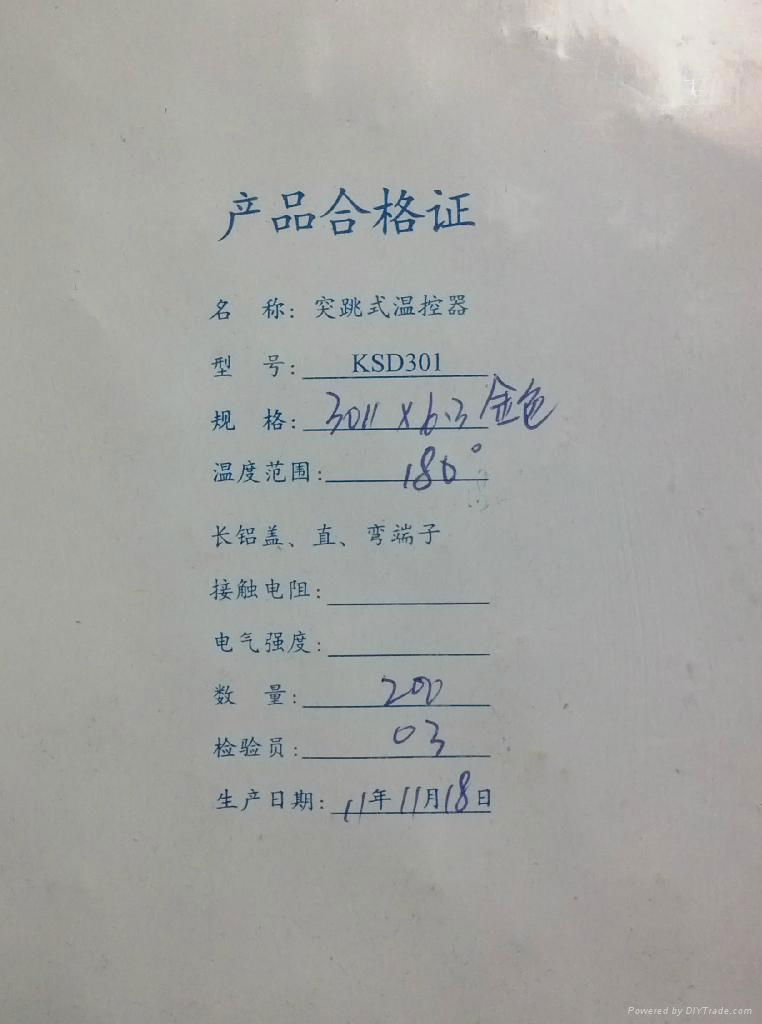 产品合格证
名 称：突跳式温控器
型 号：KSD301
规 格：3011×6.3 金色
温度范围：180°
长铝盖、直、弯端子
接触电阻：
电气强度：
数 量：200
检验员：03
生产日期：11年11月18日
Powered by DIYTrade.com